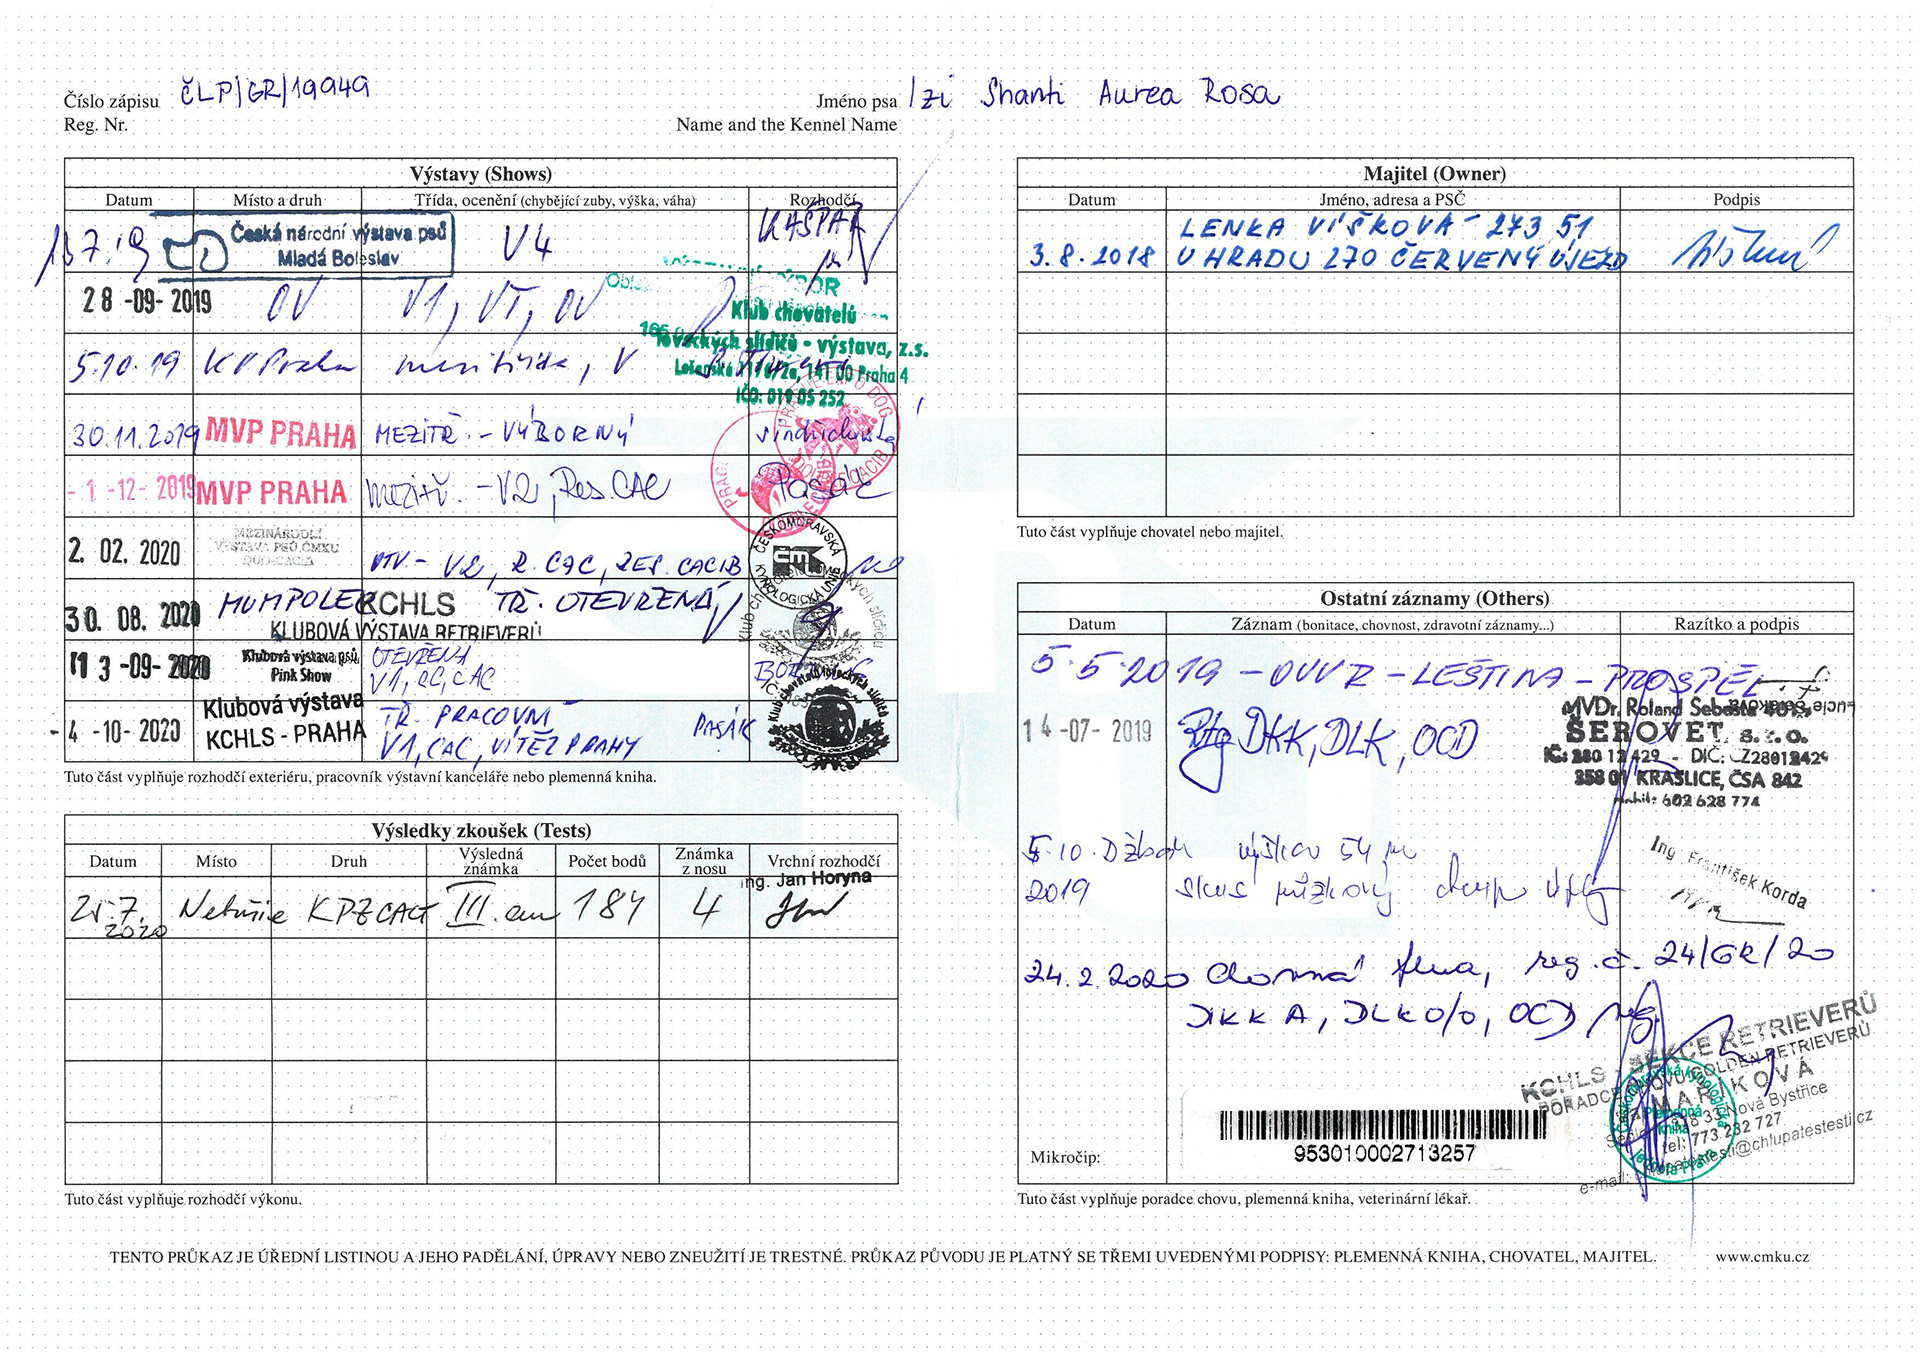 Číslo zápisu ČLP/GR/19949
Reg. Nr.
Jméno psa Izi Shanti Aurea Rosa
Name and the Kennel Name
Výstavy (Shows)
Datum Místo a druh Třída, ocenění (chybějící zuby, výška, váha) Rozhodčí
Česká národní výstava psů
Mladá Boleslav
V4 KAŠPAR
28 -09- 2019 OV V1, VT, OV
Klub chovatelů
loveckých slídičů - výstava, z.s.
141 00 Praha 4
IČO: 019 05 252
5.10.19 KV Praha mezitřída, V
30.11.2019 MVP PRAHA MEZITŘ. - VÝBORNÝ
- 1 -12- 2019 MVP PRAHA mezitř. - V2, Res. CAC Pasák
2. 02. 2020 MEZINÁRODNÍ
VÝSTAVA PSŮ ČMKU
DUO-CACIB
V2, R. CAC, RES. CACIB
ČESKOMORAVSKÁ KYNOLOGICKÁ UNIE
30. 08. 2020 HUMPOLEC KCHLS TŘ. OTEVŘENÁ
KLUBOVÁ VÝSTAVA RETRIEVERŮ
13 -09- 2020 Klubová výstava psů
Pink Show
OTEVŘENÁ
V1, CAC
- 4 -10- 2020 Klubová výstava
KCHLS - PRAHA
TŘ. PRACOVNÍ
V1, CAC, VÍTĚZ PRAHY
PASÁK
Tuto část vyplňuje rozhodčí exteriéru, pracovník výstavní kanceláře nebo plemenná kniha.
Výsledky zkoušek (Tests)
Datum Místo Druh Výsledná známka Počet bodů Známka z nosu Vrchní rozhodčí
Ing. Jan Horyna
25.7. 2020 III. 184 4
Tuto část vyplňuje rozhodčí výkonu.
Majitel (Owner)
Datum Jméno, adresa a PSČ Podpis
LENKA VÍŠKOVÁ - 273 51
3.8.2018 U HRADU 270 ČERVENÝ ÚJEZD
Tuto část vyplňuje chovatel nebo majitel.
Ostatní záznamy (Others)
Datum Záznam (bonitace, chovnost, zdravotní záznamy...) Razítko a podpis
5.5.2019 - OVVR - LEŠTINA - PROSPĚL
14 -07- 2019 Rtg DKK, DLK, OCD
MVDr. Roland Šebesta
ŠEROVET, s.r.o.
IČ: 280 12 429 - DIČ: CZ28012429
358 01 KRASLICE, ČSA 842
mobil: 602 628 774
5.10. Džbán
2019
Ing. František Korda
24.2.2020 Chovná fena, reg. č. 24/GR/20
DKK A, DLK 0/0, OCD neg.
KCHLS - SEKCE RETRIEVERŮ
PORADCE CHOVU GOLDEN RETRIEVERŮ
MAŘÍKOVÁ
378 33 Nová Bystřice
tel: 773 232 727
Českomoravská kynologická
Plemenná
kniha
Mikročip: 953010002713257
Tuto část vyplňuje poradce chovu, plemenná kniha, veterinární lékař.
TENTO PRŮKAZ JE ÚŘEDNÍ LISTINOU A JEHO PADĚLÁNÍ, ÚPRAVY NEBO ZNEUŽITÍ JE TRESTNÉ. PRŮKAZ PŮVODU JE PLATNÝ SE TŘEMI UVEDENÝMI PODPISY: PLEMENNÁ KNIHA, CHOVATEL, MAJITEL. www.cmku.cz